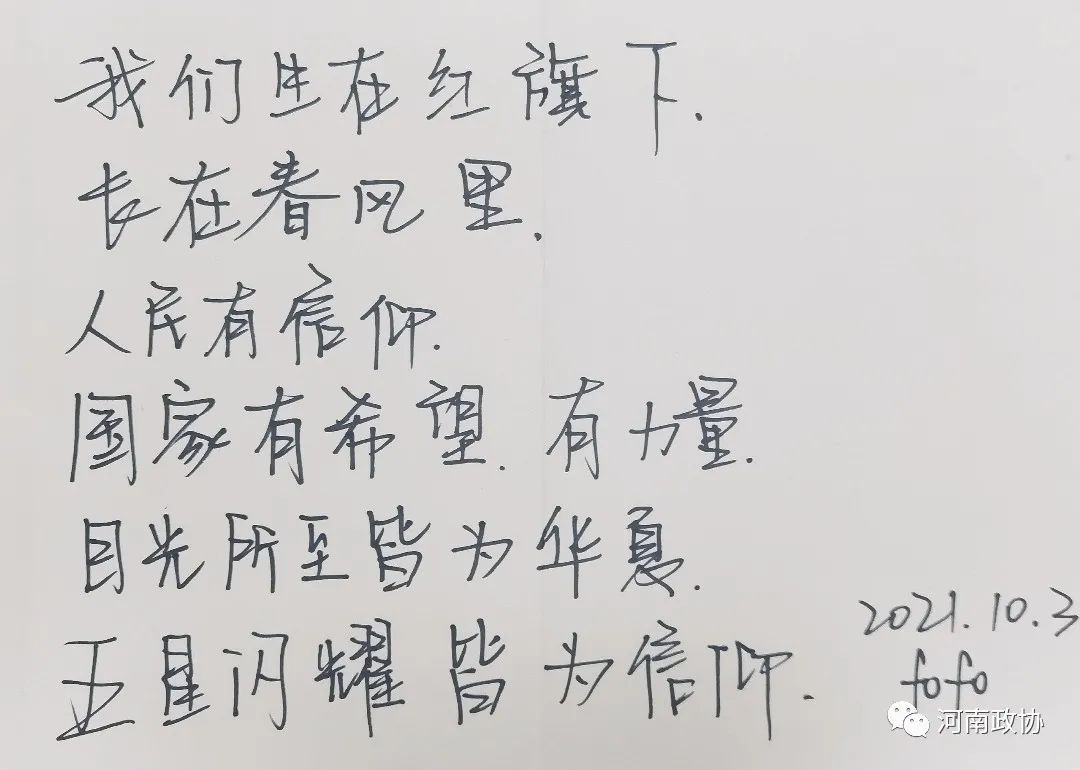 我们生在红旗下.
长在春风里.
人民有信仰.
国家有希望.有力量.
目光所至皆为华夏.
五星闪耀皆为信仰.
2021.10.3
fofo
河南政协